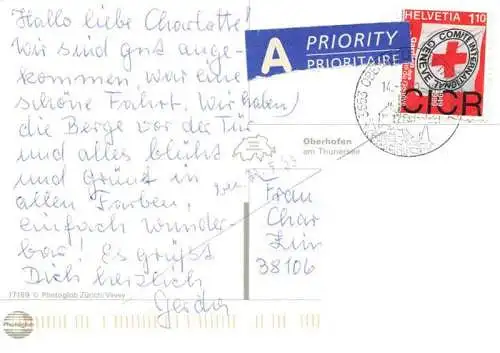 Hallo liebe Charlotte!
Wir sind gut ange-
kommen, war eine
schöne Fahrt. Wir haben)
die Berge vor der Tür
und alles blüht
und grünt in
allen Farben,
einfach wunder-
bar! Es grüßt
Dich herzlich
Gerda
17169 © Photoglob Zürich/Vevey
Photoglob
A PRIORITY
PRIORITAIRE
Oberhofen
am Thunersee
HELVETIA 110
COMITE INTERNATIONAL GENEVE
CICR
3653 OBER
Frau
Char
38106